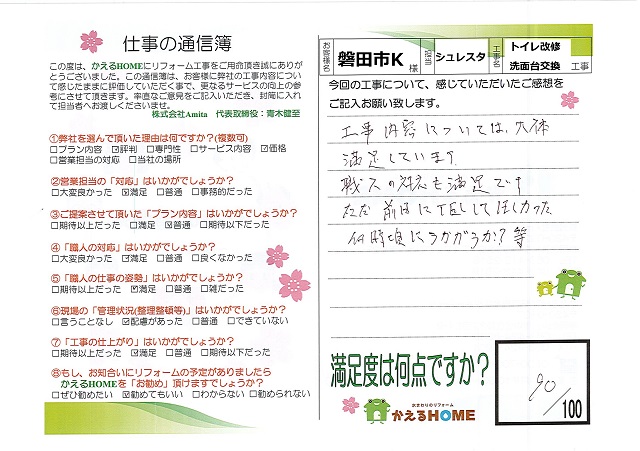 仕事の通信簿
この度は、かえるHOMEにリフォーム工事をご用命頂き誠にありが
とうございました。この通信簿は、お客様に弊社の工事内容につい
て感じたままに評価していただく事で、更なるサービスの向上の参
考にさせて頂きます。率直なご意見をご記入いただき、封筒に入れ
て担当者へお渡しくださいませ。
株式会社Amita 代表取締役：青木健至
①弊社を選んで頂いた理由は何ですか?(複数可)
□プラン内容 ☑評判 □専門性 □サービス内容 ☑価格
□営業担当の対応 □当社の場所
②営業担当の「対応」はいかがでしょうか?
□大変良かった ☑満足 □普通 □事務的だった
③ご提案させて頂いた「プラン内容」はいかがでしょうか？
□期待以上だった □満足 ☑普通 □期待以下だった
④「職人の対応」はいかがでしょうか?
□大変良かった ☑満足 □普通 □良くなかった
⑤「職人の仕事の姿勢」はいかがでしょうか?
□期待以上だった ☑満足 □普通 □雑だった
⑥現場の「管理状況(整理整頓等)」はいかがでしょうか?
□言うことなし ☑配慮があった □普通 □できていない
⑦「工事の仕上がり」はいかがでしょうか?
□期待以上だった ☑満足 □普通 □期待以下だった
⑧もし、お知合いにリフォームの予定がありましたら
かえるHOMEを「お勧め」頂けますでしょうか?
□ぜひ勧めたい ☑勧めてもいい □わからない □勧められない
お客様名 磐田市K 様 担当 シュレスタ 工事名 トイレ改修 洗面台交換 工事
今回の工事について、感じていただいたご感想を
ご記入お願い致します。
工事内容については、大体
満足しています
職人の対応も満足です
ただ前日にTELしてほしかった
何時頃にうかがうか？等
満足度は何点ですか？
90/100
水まわりのリフォーム
かえるHOME